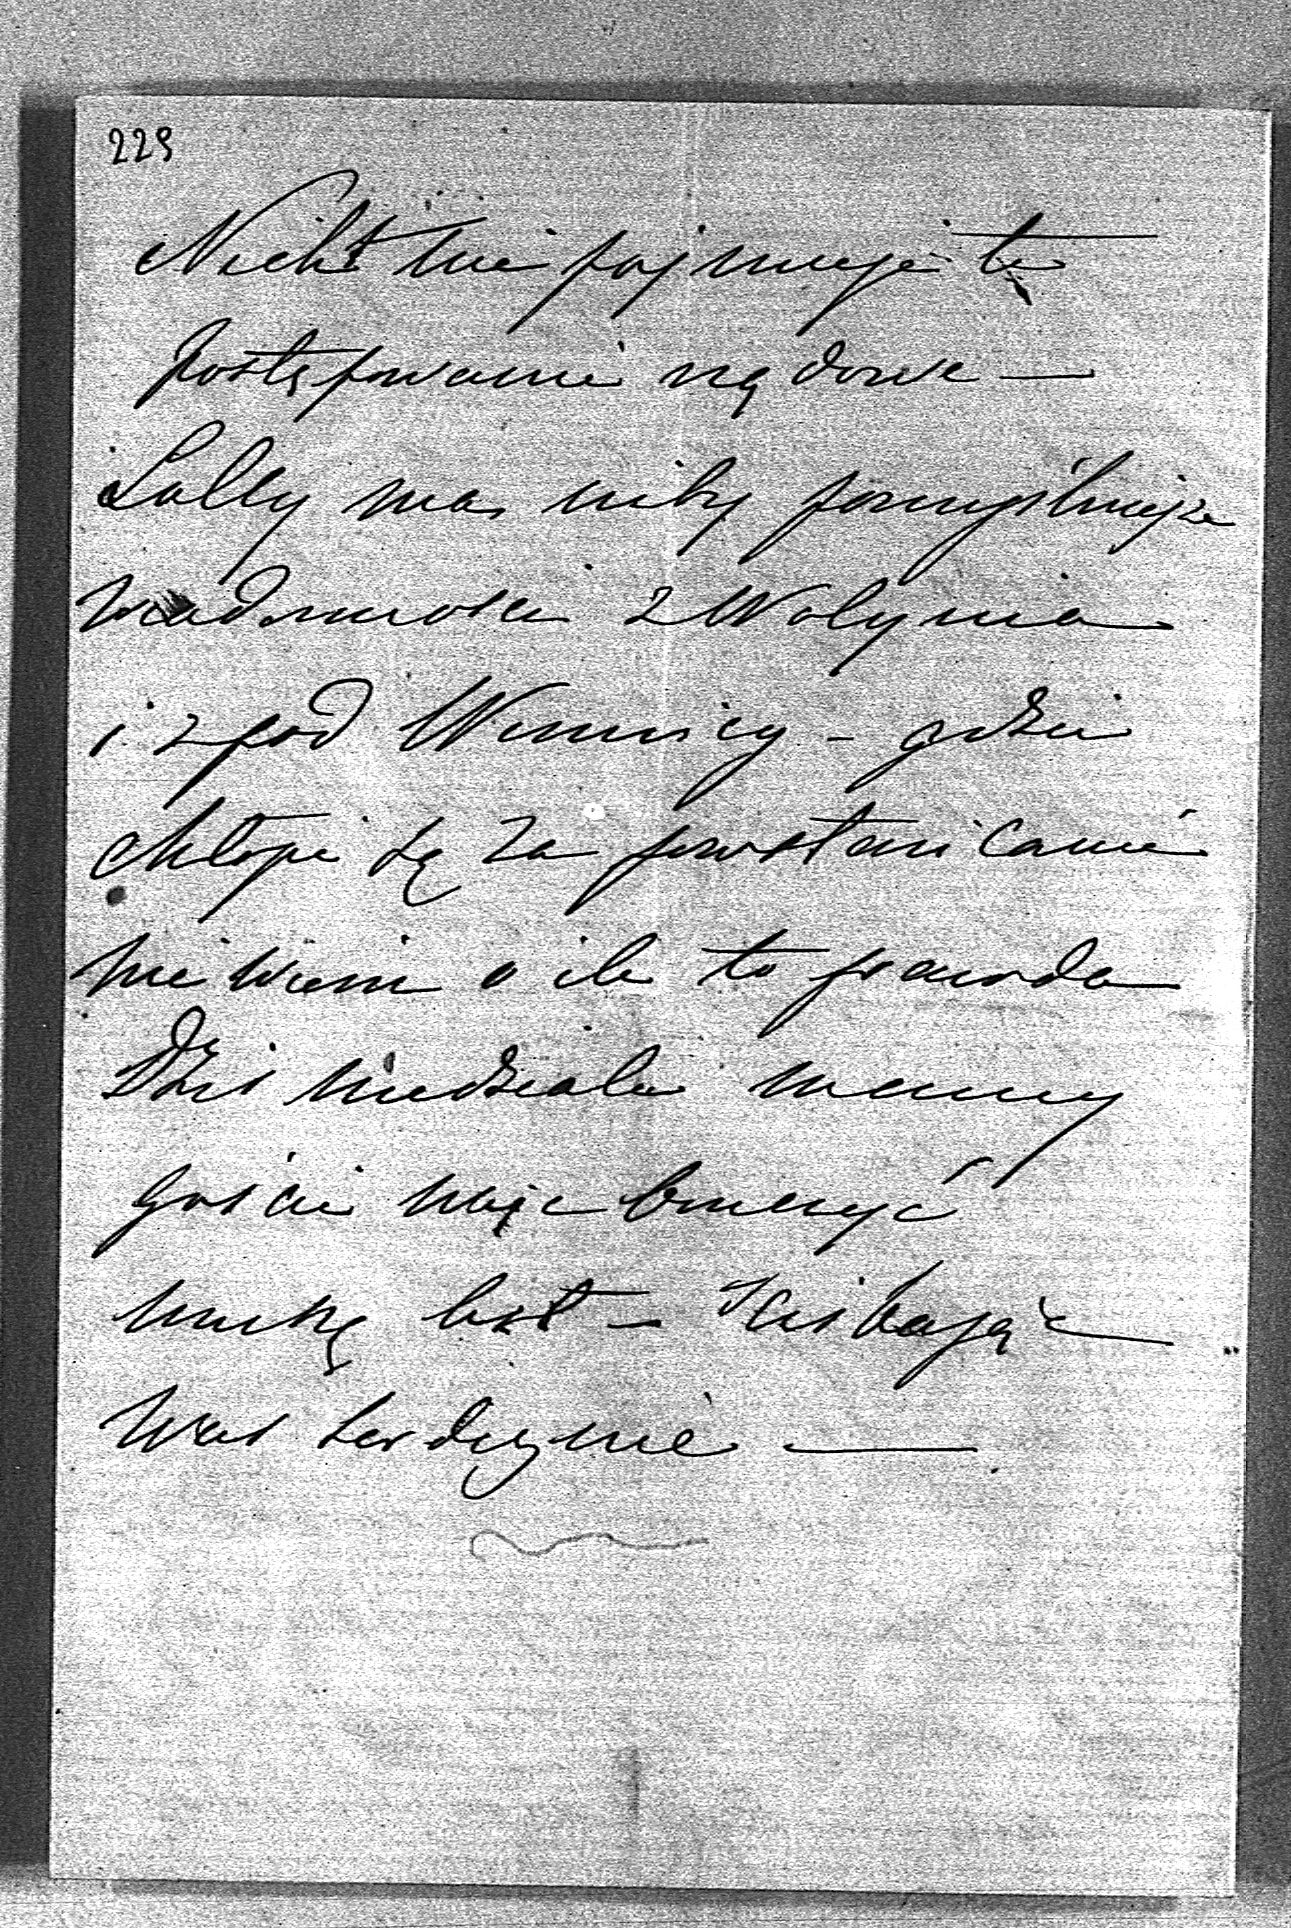 229
Nicht nie pojmuje te
postępowanie rządowe —
Lolly ma niby pomyślniejsze
wiadomości z Wołynia
i z pod Winnicy – gdzie
chłopi są za powstańcami
nie wiem o ile to prawda
Dziś niedziela mamy
gości więc kończyć
muszę list – ściskając
Was serdecznie —